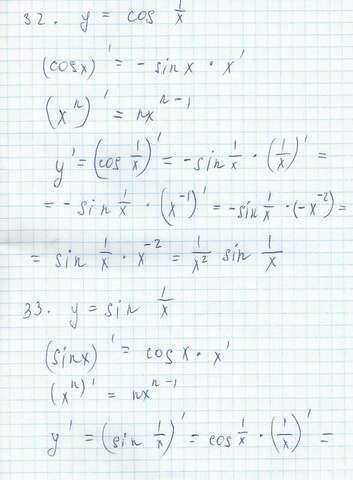 32. y = cos 1/x
(cosx)' = - sinx · x'
(x^n)' = nx^(n-1)
y' = (cos 1/x)' = -sin 1/x · (1/x)' =
= - sin 1/x · (x^-1)' = -sin 1/x · (-x^-2) =
= sin 1/x · x^-2 = 1/x^2 sin 1/x
33. y = sin 1/x
(sinx)' = cosx · x'
(x^n)' = nx^(n-1)
y' = (sin 1/x)' = cos 1/x · (1/x)' =